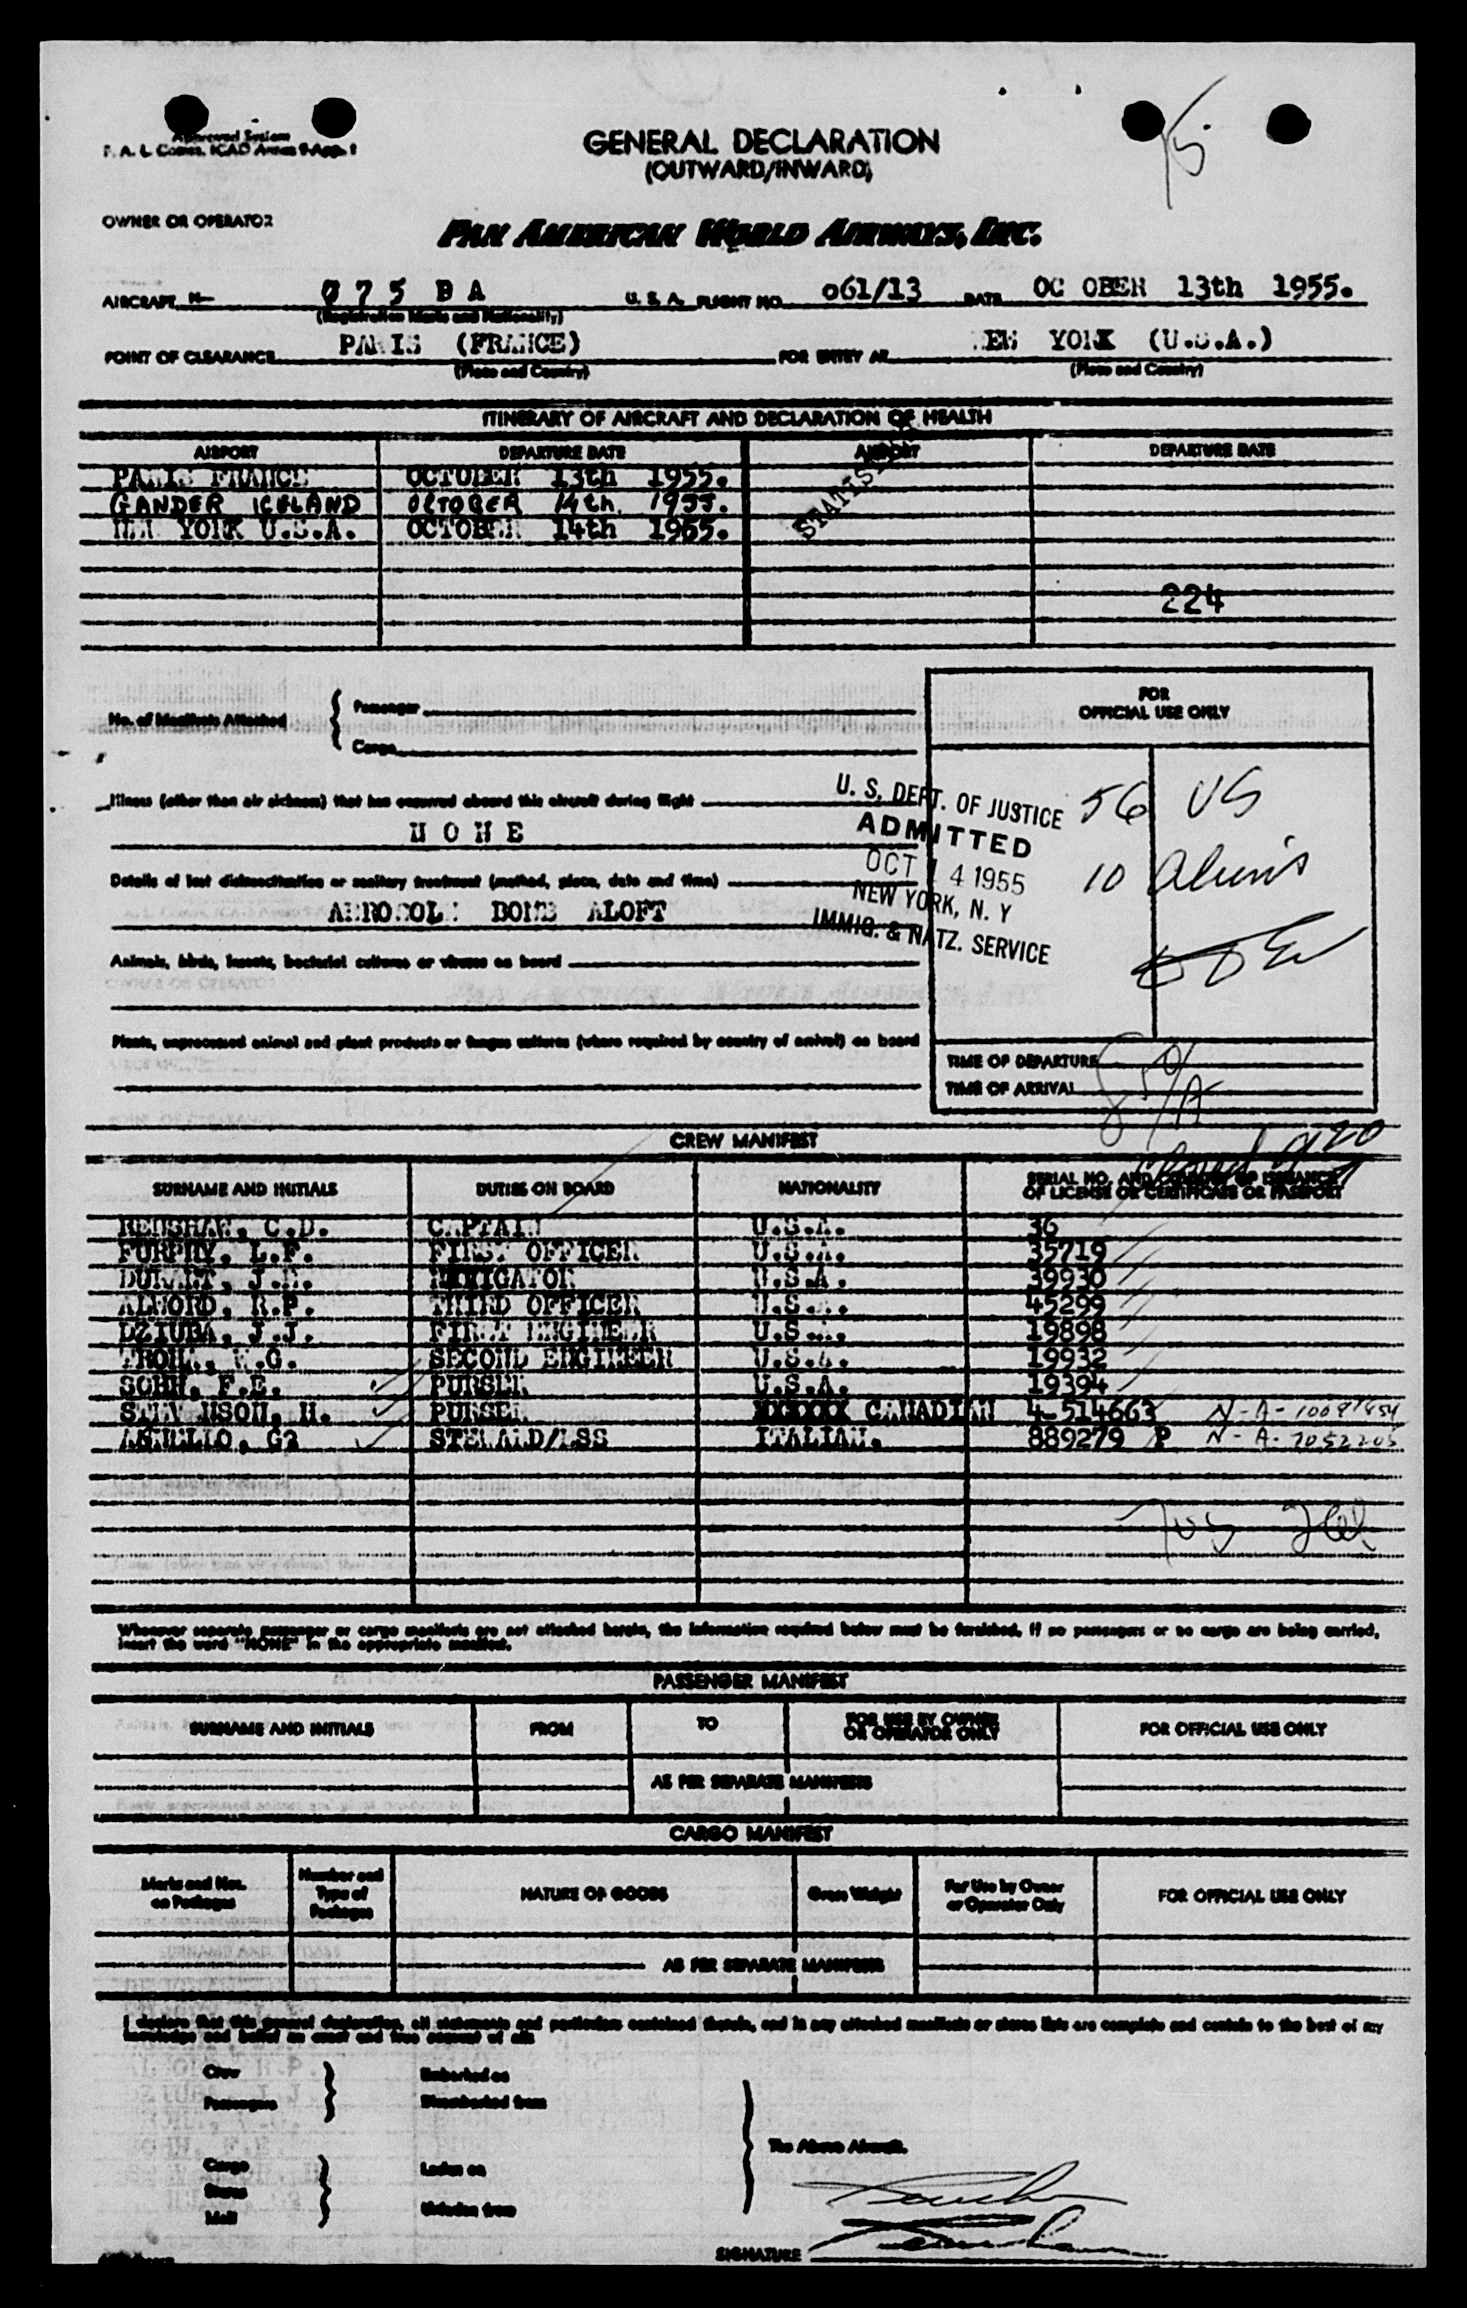 Approved System
F. A. L. Comm. ICAO Annex 9-App. 1
GENERAL DECLARATION
(OUTWARD/INWARD)
OWNER OR OPERATOR
PAN AMERICAN WORLD AIRWAYS, INC.
AIRCRAFT N- 075 BA U. S. A. FLIGHT NO. 061/13 DATE OC OBER 13th 1955.
(Registration Marks and Nationality)
POINT OF CLEARANCE PARIS (FRANCE) FOR ENTRY AT NEW YORK (U.S.A.)
(Place and Country) (Place and Country)
ITINERARY OF AIRCRAFT AND DECLARATION OF HEALTH
AIRPORT DEPARTURE DATE AIRPORT DEPARTURE DATE
PARIS FRANCE OCTOBER 13th 1955.
GANDER ICELAND OCTOBER 14th. 1955.
NEW YORK U.S.A. OCTOBER 14th 1955.
224
FOR
OFFICIAL USE ONLY
No. of Manifests Attached Passenger
Cargo
56 US
10 Aliens
Illness (other than air sickness) that has occurred aboard this aircraft during flight
NONE
U. S. DEPT. OF JUSTICE
ADMITTED
OCT 14 1955
NEW YORK, N. Y
IMMIG. & NATZ. SERVICE
Details of last disinsectization or sanitary treatment (method, place, date and time)
AEROSOLE BOMB ALOFT
Animals, birds, insects, bacterial cultures or viruses on board
Plants, unprocessed animal and plant products or fungus cultures (where required by country of arrival) on board
TIME OF DEPARTURE
TIME OF ARRIVAL
CREW MANIFEST
SURNAME AND INITIALS DUTIES ON BOARD NATIONALITY SERIAL NO. AND COUNTRY OF ISSUANCE
OF LICENSE OR CERTIFICATE OR PASSPORT
RENSHAW, C.D. CAPTAIN U.S.A. 36
FURPHY, L.F. FIRST OFFICER U.S.A. 35719
NAVIGATOR U.S.A. 39930
ALMORD, R.P. THIRD OFFICER U.S.A. 45299
DZIUBA, J.J. FIRST ENGINEER U.S.A. 19898
SECOND ENGINEER U.S.A. 19932
SOHN, F.E. PURSER U.S.A. 19394
STEVENSON, H. PURSER XXXXXX CANADIAN 4-514663
AGNELLO, G STEWARD/LSS ITALIAN. 889279 P N-A-7052205
Whenever separate passenger or cargo manifests are not attached hereto, the information required below must be furnished. If no passengers or no cargo are being carried,
insert the word "NONE" in the appropriate manifest.
PASSENGER MANIFEST
SURNAME AND INITIALS FROM TO FOR USE BY OWNER
OR OPERATOR ONLY FOR OFFICIAL USE ONLY
AS PER SEPARATE MANIFESTS
CARGO MANIFEST
Marks and Nos.
on Packages Number and
Type of
Packages NATURE OF GOODS Gross Weight For Use by Owner
or Operator Only FOR OFFICIAL USE ONLY
AS PER SEPARATE MANIFESTS
I declare that this general declaration, all statements and particulars contained therein, and in any attached manifests or stores lists are complete and contain to the best of my
knowledge and belief an exact and true account of all:
Crew Embarked on
Passengers Disembarked from
The Above Aircraft.
Cargo Laden on
Stores
Mail Unladen from
SIGNATURE